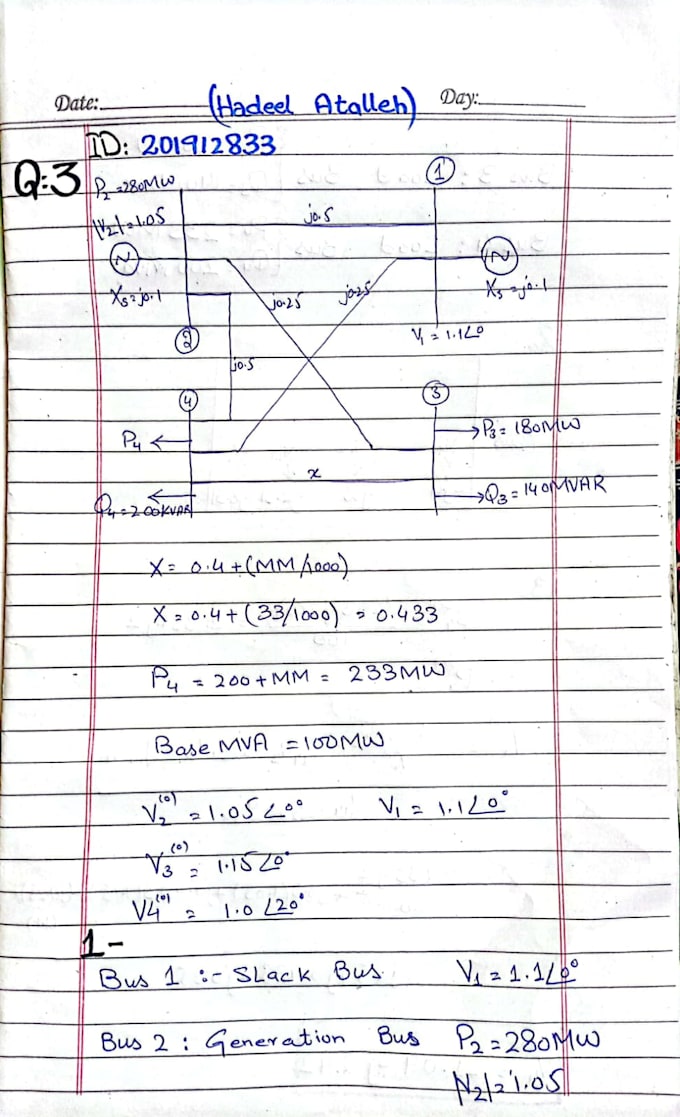 Date: (Hadeel Atalleh) Day:
ID: 201912833
Q:3
P₂=280MW
①
|V₂|=1.05
j0.5
N
N
Xs=j0.1
j0.25
j0.25
Xs=j0.1
②
V₁ = 1.1∠0
j0.5
④
③
P₄ ←
→P₃= 180MW
x
Q₄=200KVAR
→Q₃=140MVAR
X= 0.4+(MM/1000)
X=0.4+(33/1000) = 0.433
P₄ = 200+MM = 233MW
Base MVA = 100MW
V₂⁽⁰⁾ = 1.05∠0° V₁ = 1.1∠0°
V₃⁽⁰⁾ = 1.15∠0°
V4⁽⁰⁾ = 1.0∠20°
1-
Bus 1 :- SLack Bus V₁ = 1.1∠0°
Bus 2 : Generation Bus P₂=280MW
|V₂|=1.05